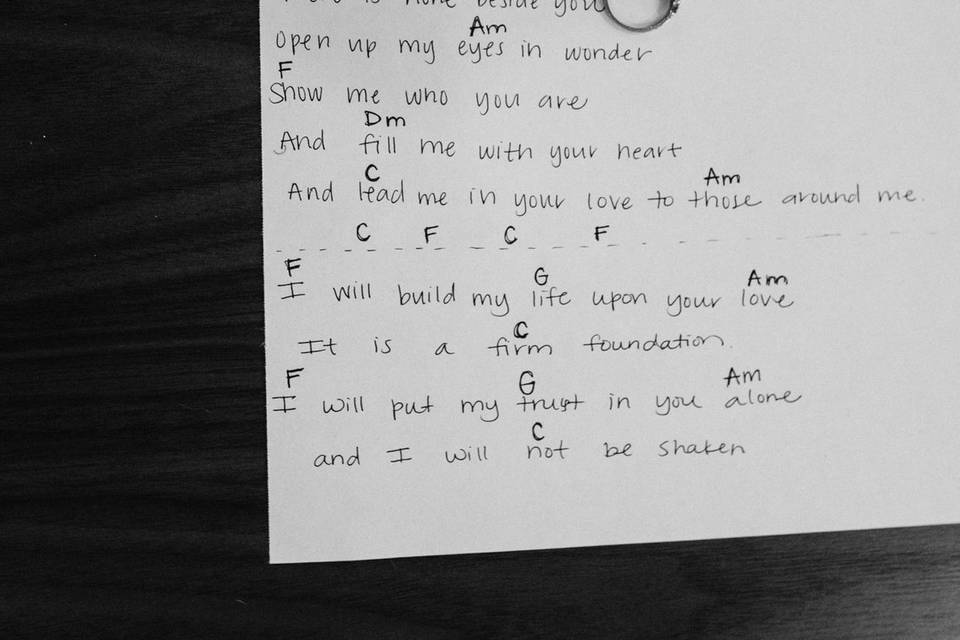 is none beside you
Am
Open up my eyes in wonder
F
Show me who you are
Dm
And fill me with your heart
C Am
And lead me in your love to those around me.
C F C F
F G Am
I will build my life upon your love
C
It is a firm foundation.
F G Am
I will put my trust in you alone
C
and I will not be shaken